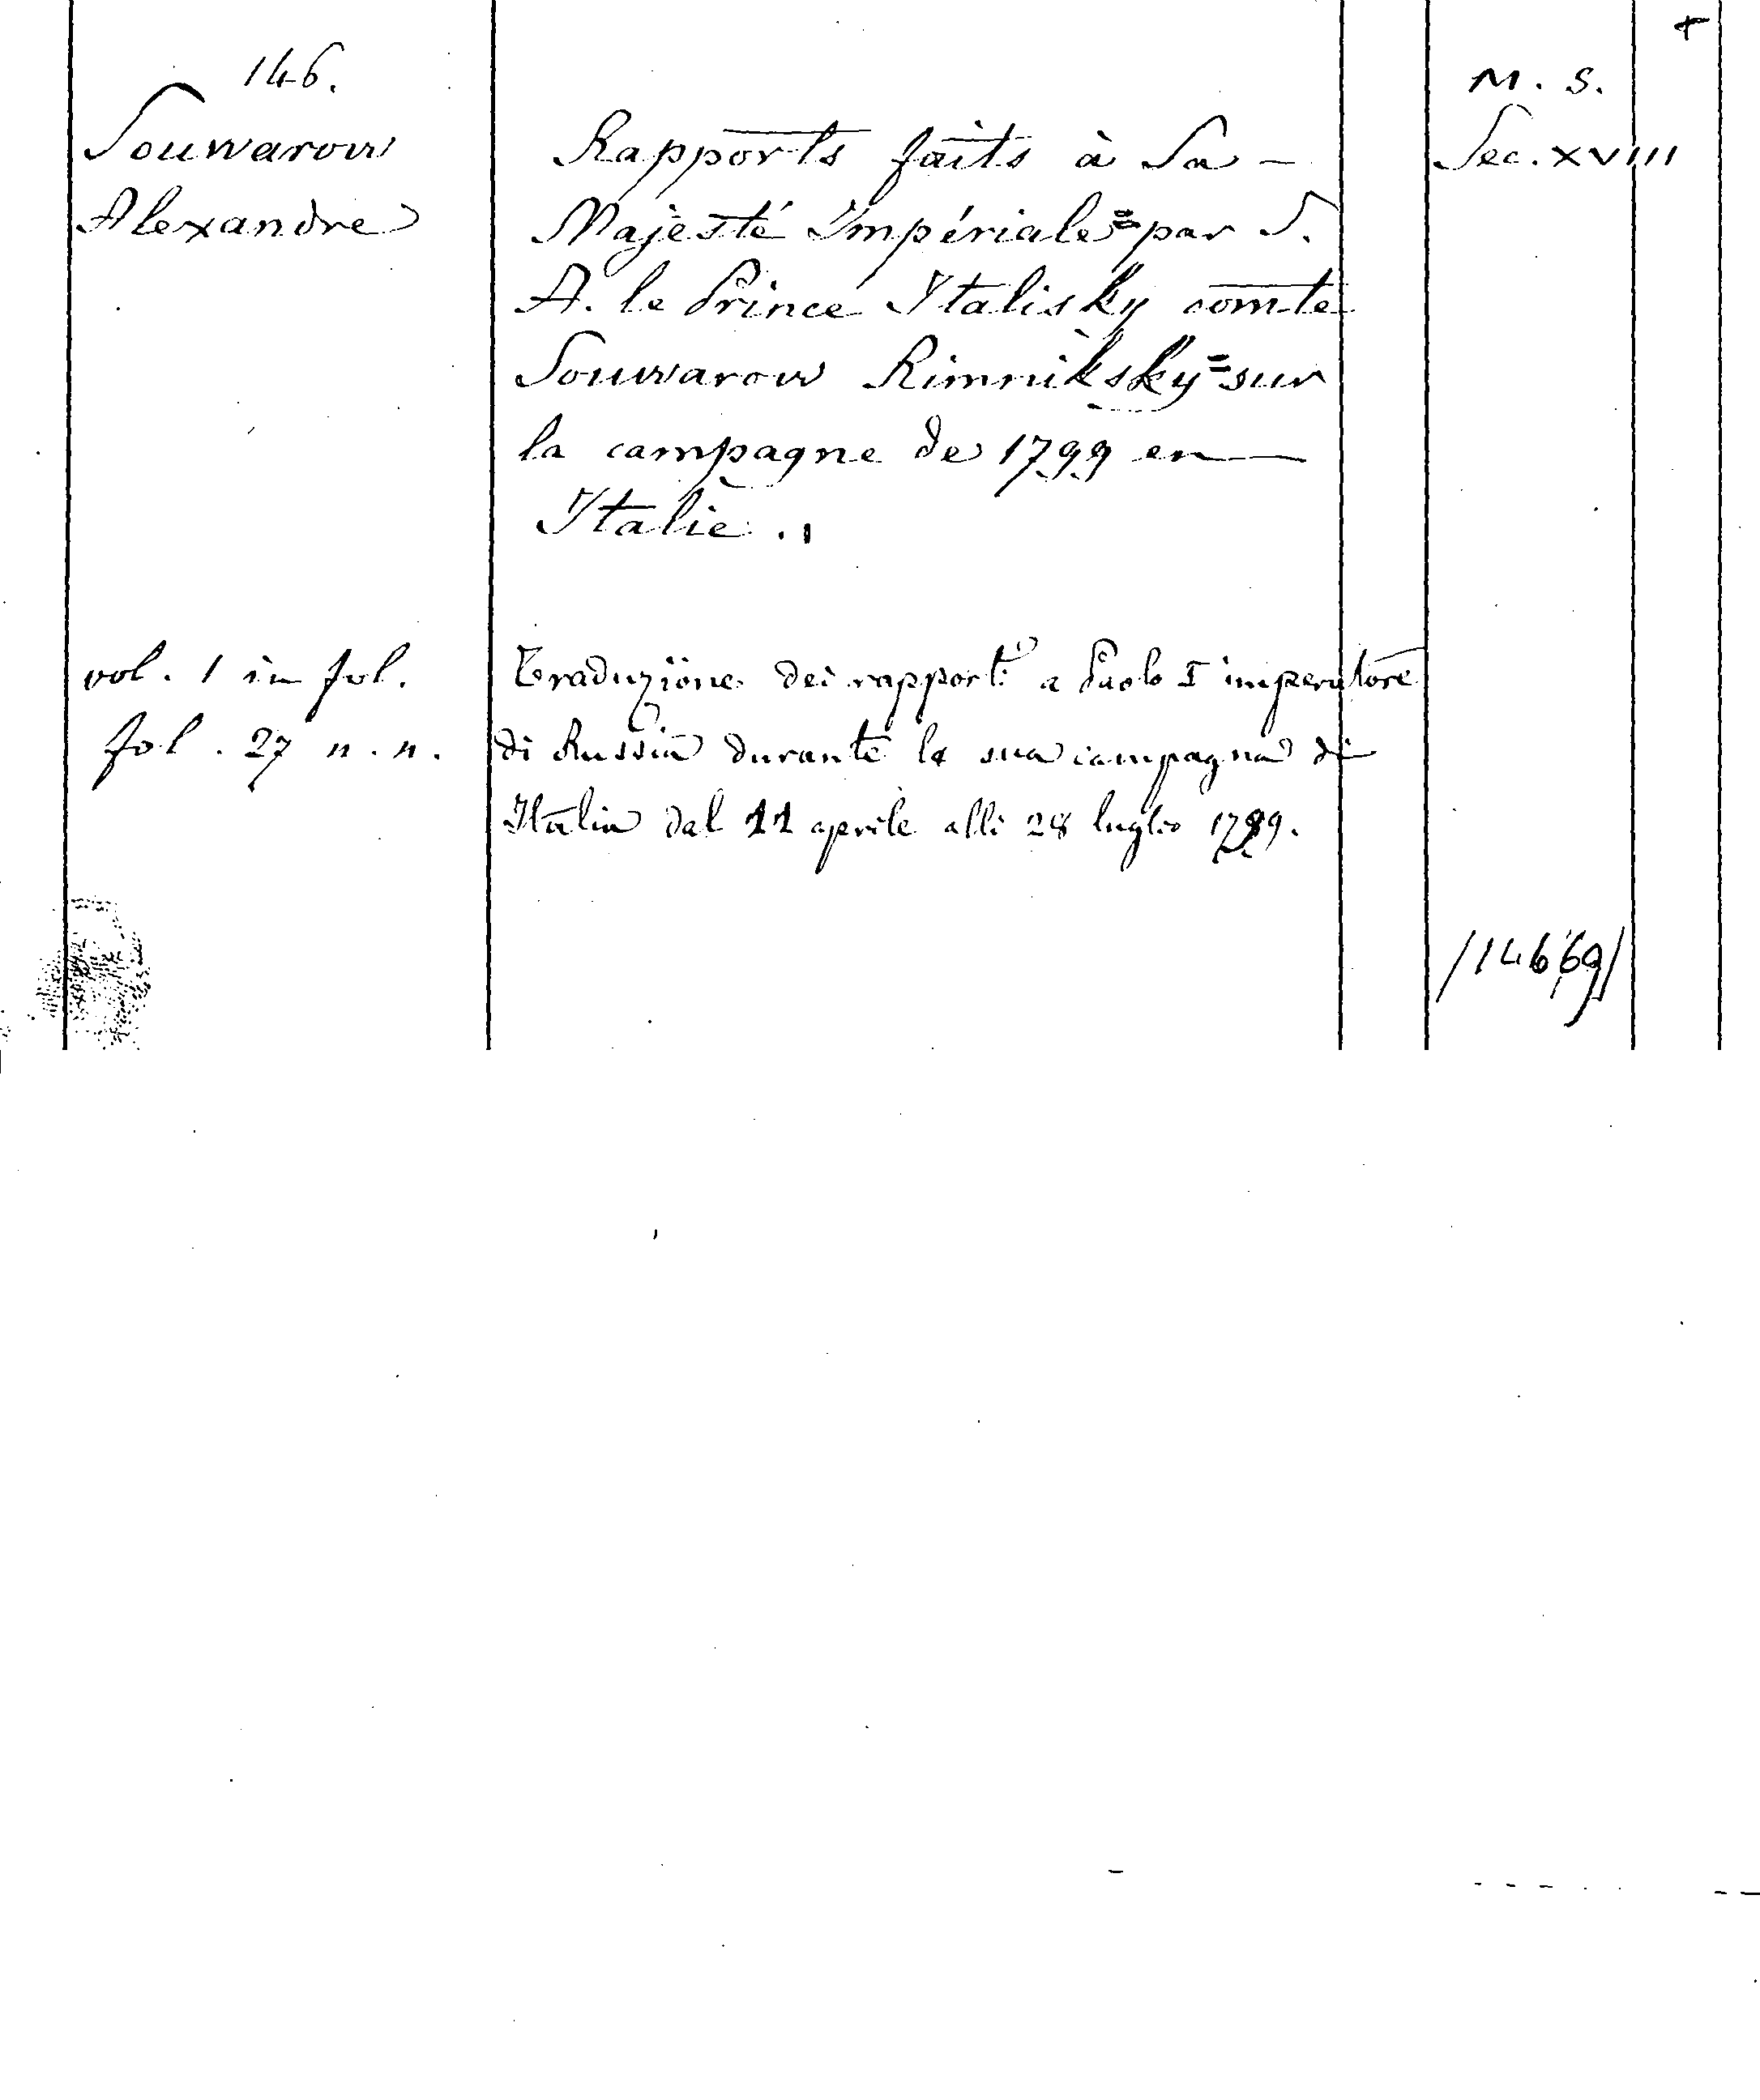 146.
Souwarow
Alexandre
Rapports faits à Sa -
Majesté Impériale = par S.
A. le Prince Italisky comte
Souwarow Rimniksky = sur
la campagne de 1799 en —
Italie .
vol. 1 in fol.
fol. 27 n. n.
Traduzione dei rapporti a Paolo I imperatore
di Russia durante la sua campagna di
Italia dal 11 aprile alli 28 luglio 1799.
+
M. S.
Sec. XVIII
/14669/